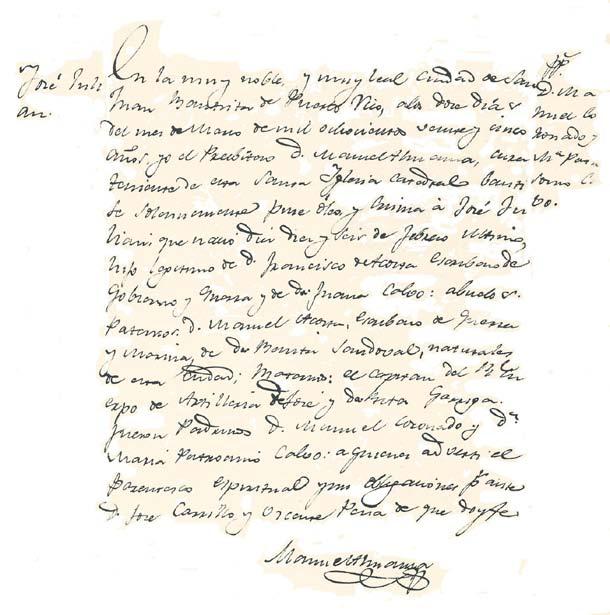 José Juli
an.
En la muy noble, y muy leal ciudad de San
Juan Bautista de Puerto Rico, a los doce dias
del mes de Marzo de mil ochocientos veinte y cinco
años, yo el Presbitero D. Manuel Almansa, cura
teniente de esta Santa Iglesia Catedral bauti
sé solemnemente puse óleo, y crisma à José Ju
lian que nació dia diez y seis de febrero ultimo,
hijo legitimo de D. Francisco de Acosta Escribano de
Gobierno y Guerra y de Da. Juana Calvo: abuelos
Paternos. D. Manuel Acosta, Escribano de Guerra
y Marina, de Da. Benita Sandoval, naturales
de esta Ciudad; Maternos: el capitan del Rl. Cu
erpo de Artilleria José y Da. Garriga.
fueron Padrinos D. Manuel Coronado y Da.
Maria Patrosinio Calvo: a quienes adverti el
Parentesco espiritual y sus obligaciones ante
D. Jose Carrillo y Vicente Peña de que doy fe
Manuel Almansa
pp.
D. Ma
nuel Co
ronado, y
Ma. Patro
sinio C.
vo.